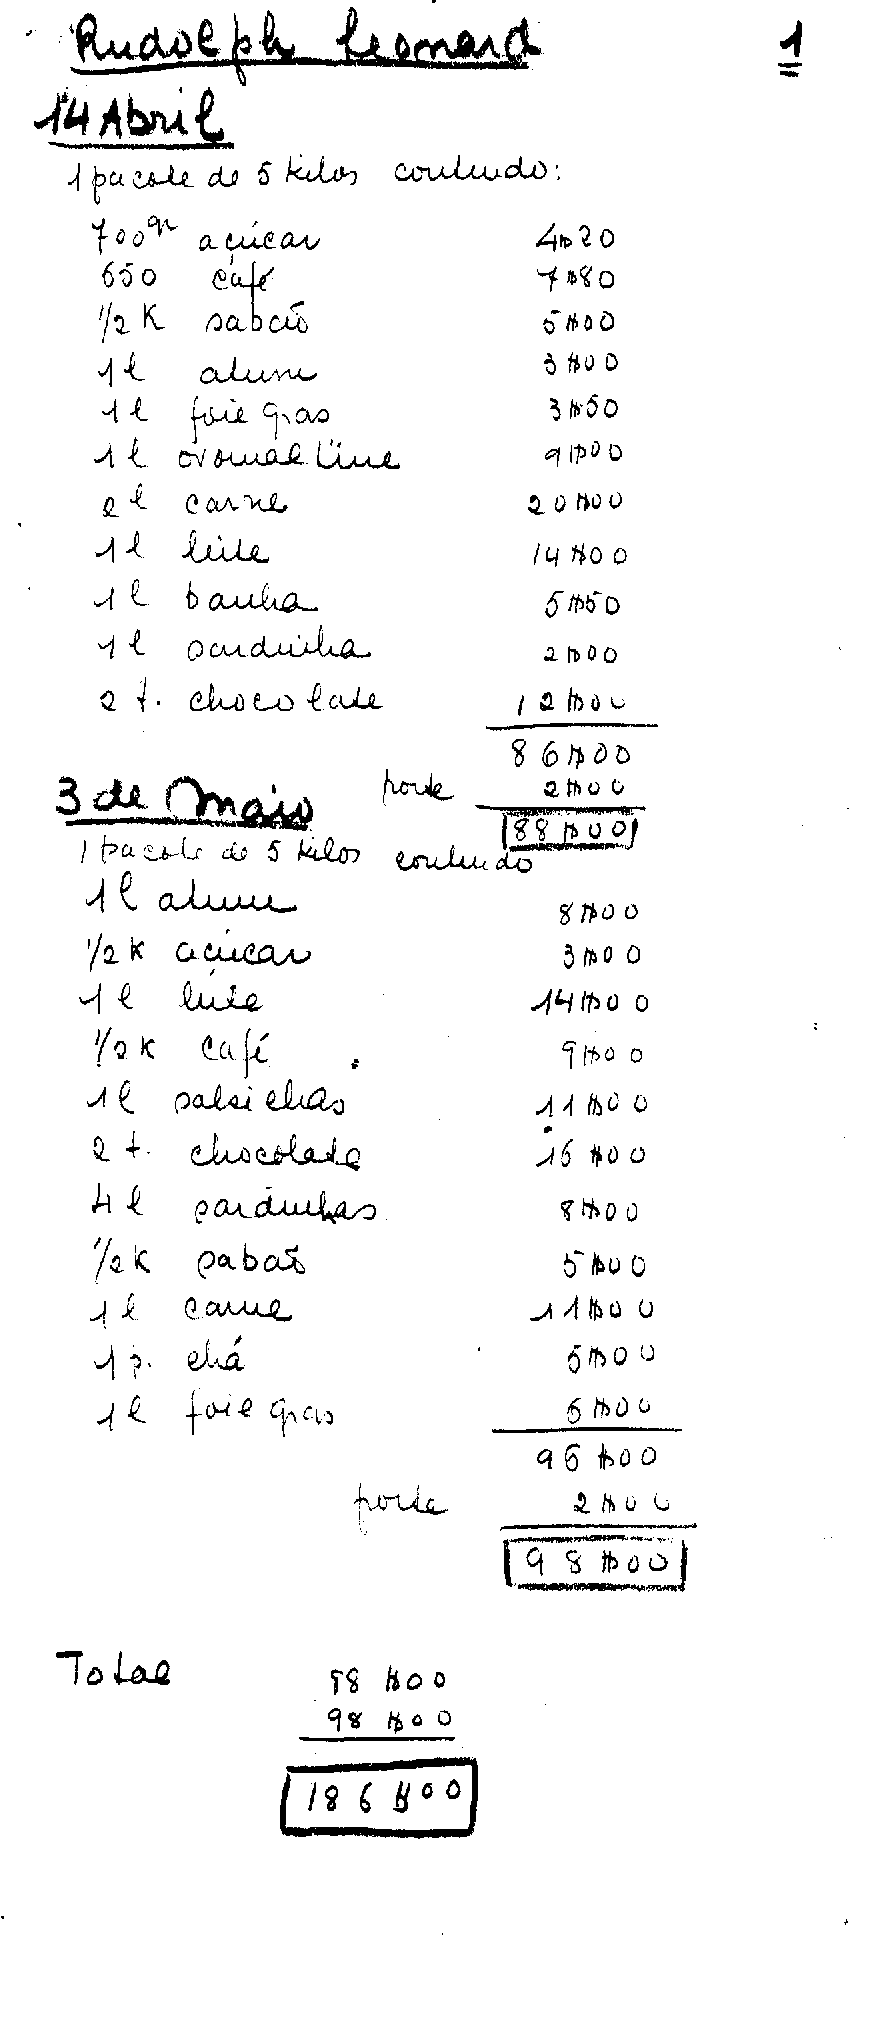 Rudolph Leonard 1
14 Abril
1 pacote de 5 kilos contendo:
700gr açúcar 4$20
650 café 7$80
1/2 K sabão 5$00
1 l atum 3$00
1 l foie gras 3$50
1 l ovomaltine 9$00
2 l carne 20$00
1 l leite 14$00
1 l banha 5$50
1 l sardinha 2$00
2 t. chocolate 12$00
86$00
porte 2$00
88$00
3 de Maio
1 pacote de 5 kilos contendo
1 l atum 8$00
1/2 K açúcar 3$00
1 l leite 14$00
1/2 K café 9$00
1 l salsichas 11$00
2 t. chocolate 16$00
4 l sardinhas 8$00
1/2 K sabão 5$00
1 l carne 11$00
1 p. chá 5$00
1 l foie gras 6$00
96$00
porte 2$00
98$00
Total 88$00
98$00
186$00